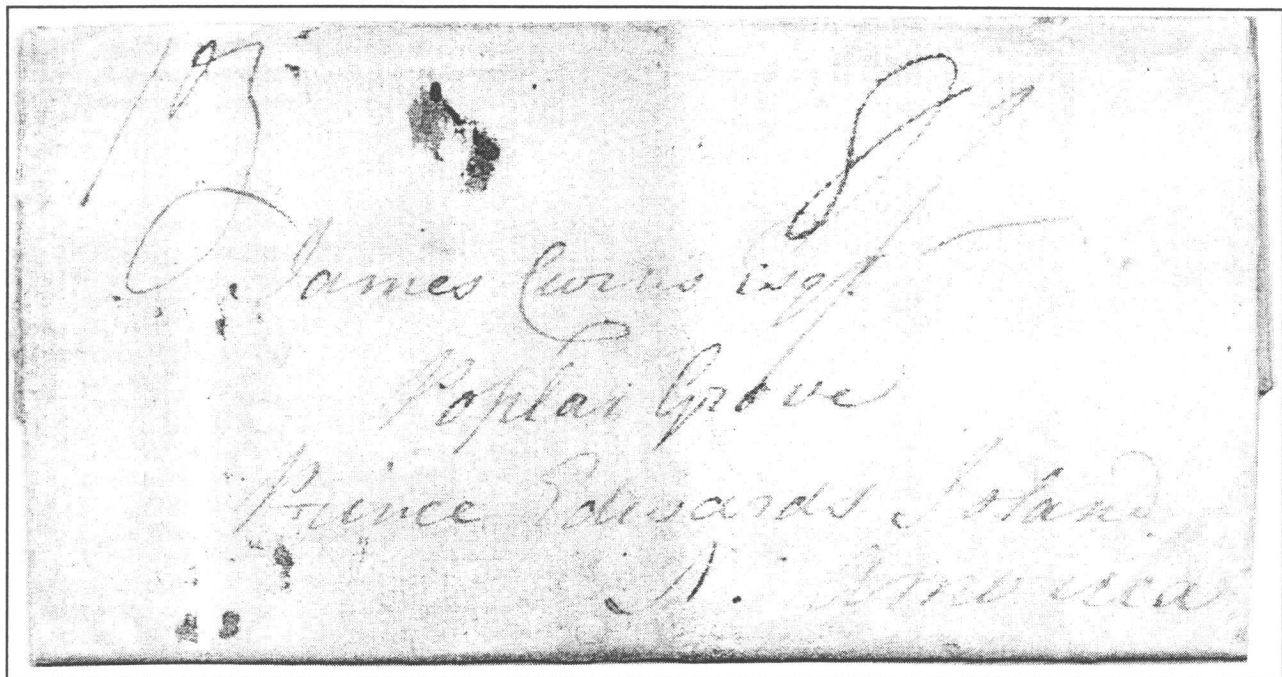 8
James Curtis Esqr
Poplar Grove
Prince Edwards Island
N. America